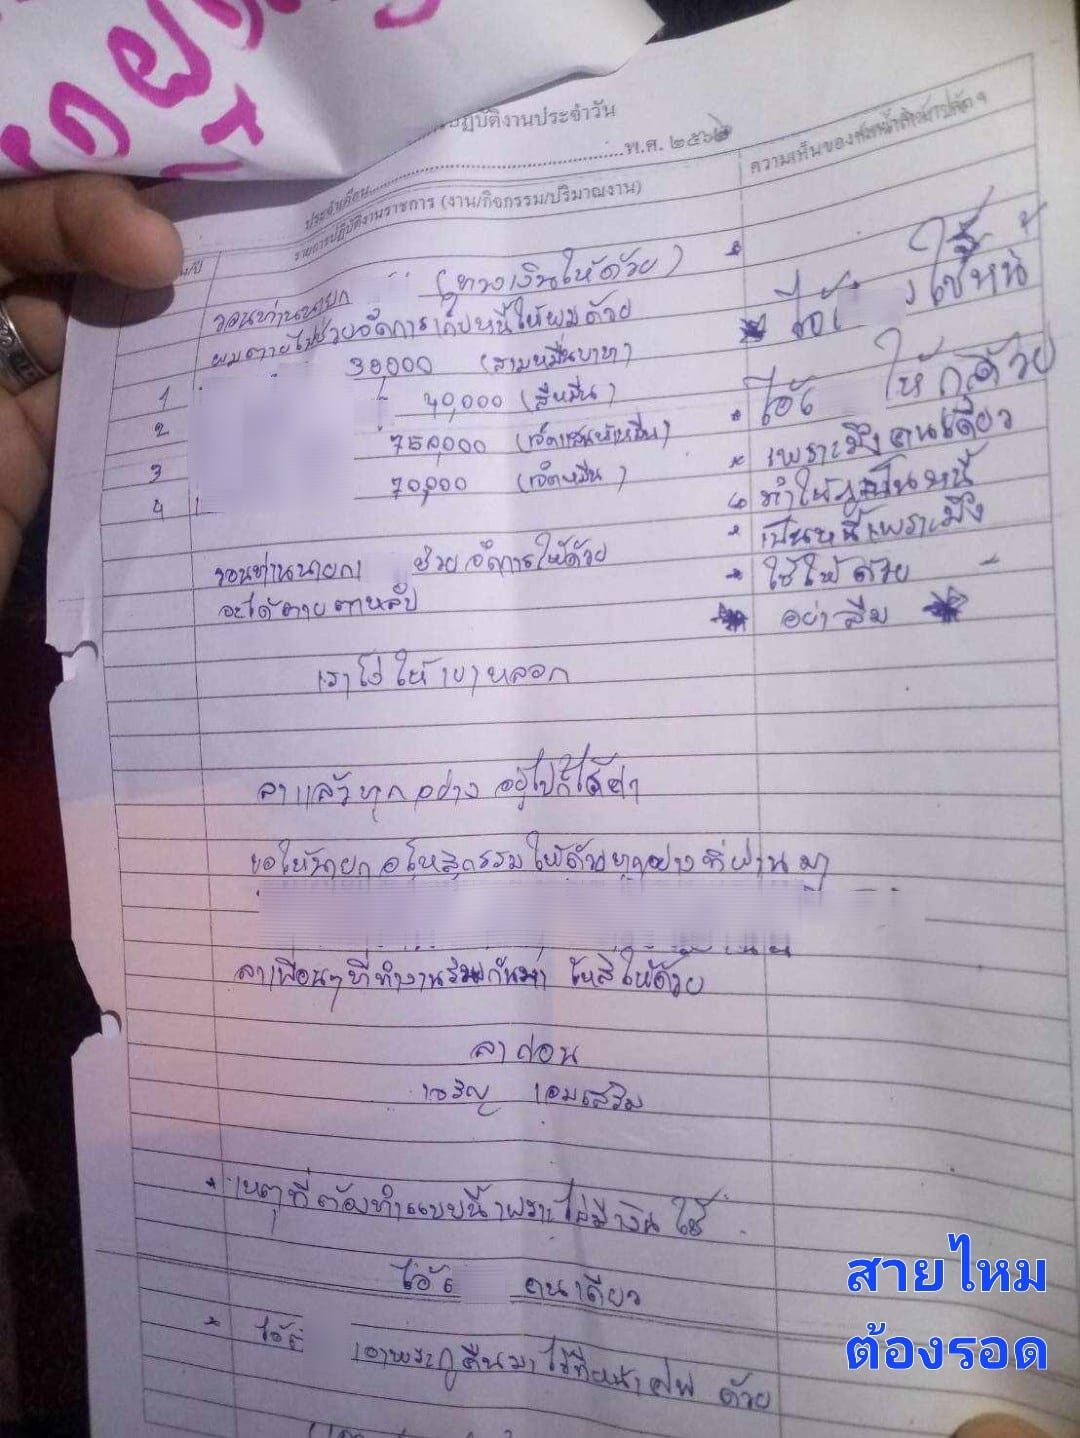 ปฏิบัติงานประจำวัน
ประจำเดือน
พ.ศ. ๒๕๖๒
รายการปฏิบัติงานราชการ (งาน/กิจกรรม/ปริมาณงาน)
ความเห็นของ
วอนท่านนายก (ทวงเงินให้ด้วย)
ผมตายไปช่วยจัดการเก็บหนี้ให้ผมด้วย
1 30000 (สามหมื่นบาท)
2 40,000 (สี่หมื่น)
3 750,000 (เจ็ดแสนห้าหมื่น)
4 70,000 (เจ็ดหมื่น)
วอนท่านนายก ช่วยจัดการให้ด้วย
จะได้ตายตาหลับ
ใช้หนี้
ให้กูด้วย
เพราะมึงคนเดียว
ทำให้กูเป็นหนี้
เป็นหนี้เพราะมึง
ใช้ให้ด้วย
อย่าลืม
เราโง่ให้เขาหลอก
ลาแล้วทุกอย่าง อยู่ไปก็ไร้ค่า
ขอให้นายกอโหสิกรรมให้ด้วยทุกอย่างที่ผ่านมา
ลาเพื่อนๆที่ทำงานร่วมกันมา โหสิให้ด้วย
ลาก่อน
เจริญ เอมเสริม
เหตุที่ต้องทำแบบนี้เพราะไม่มีเงินใช้
คนเดียว
เอาพระกูคืนมาไว้ที่หน้าศพด้วย
สายไหม
ต้องรอด